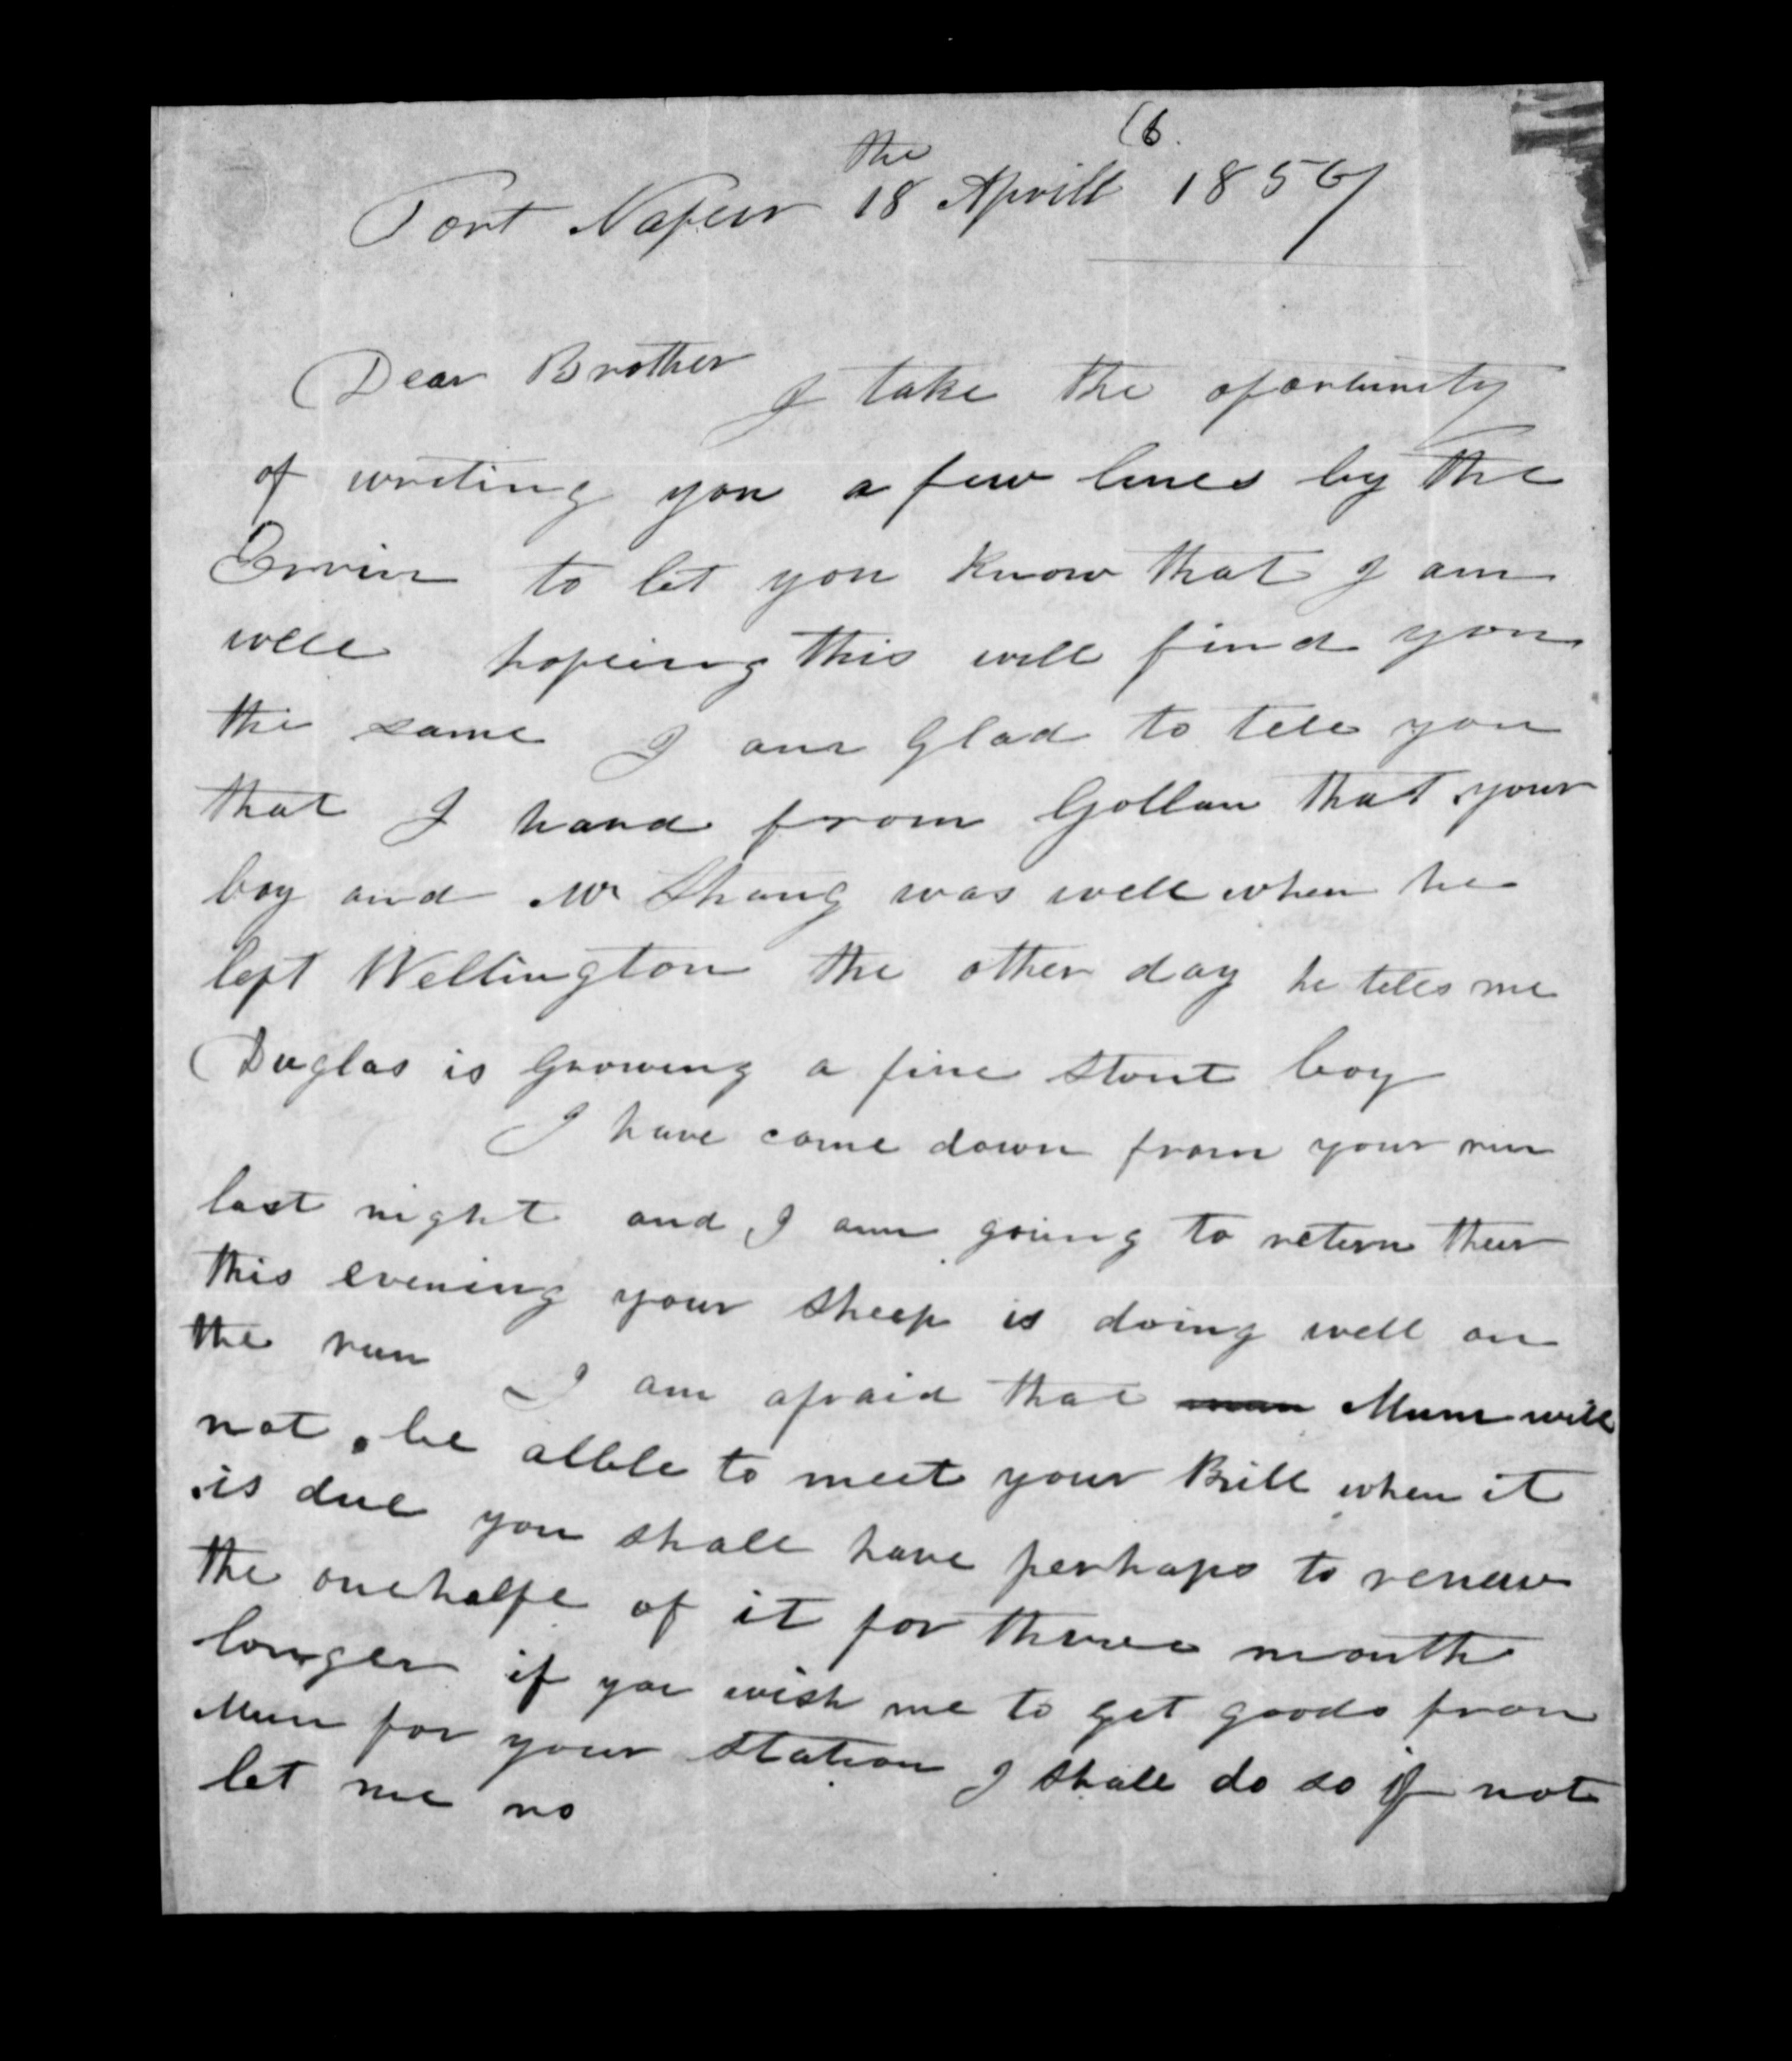 (6.
the
Port Napeir 18 Aprill 1856/
Dear Brother
I take the oportunity
of writing you a few lines by the
to let you know that I am
well hopeing this will find you
the same I am Glad to tell you
that I hard from Gollan that your
boy and Mr Shang was well when he
left Wellington the other day he tells me
Duglas is Growing a fine stout boy
I have came down from your run
last night and I am going to return their
this evening your sheep is doing well on
the run I am afraid that Munn will
not be allble to meet your Bill when it
is due you shall have perhaps to renew
the onehalfe of it for three month
longer if you wish me to get goods from
Munn for your station I shall do so if not
let me no